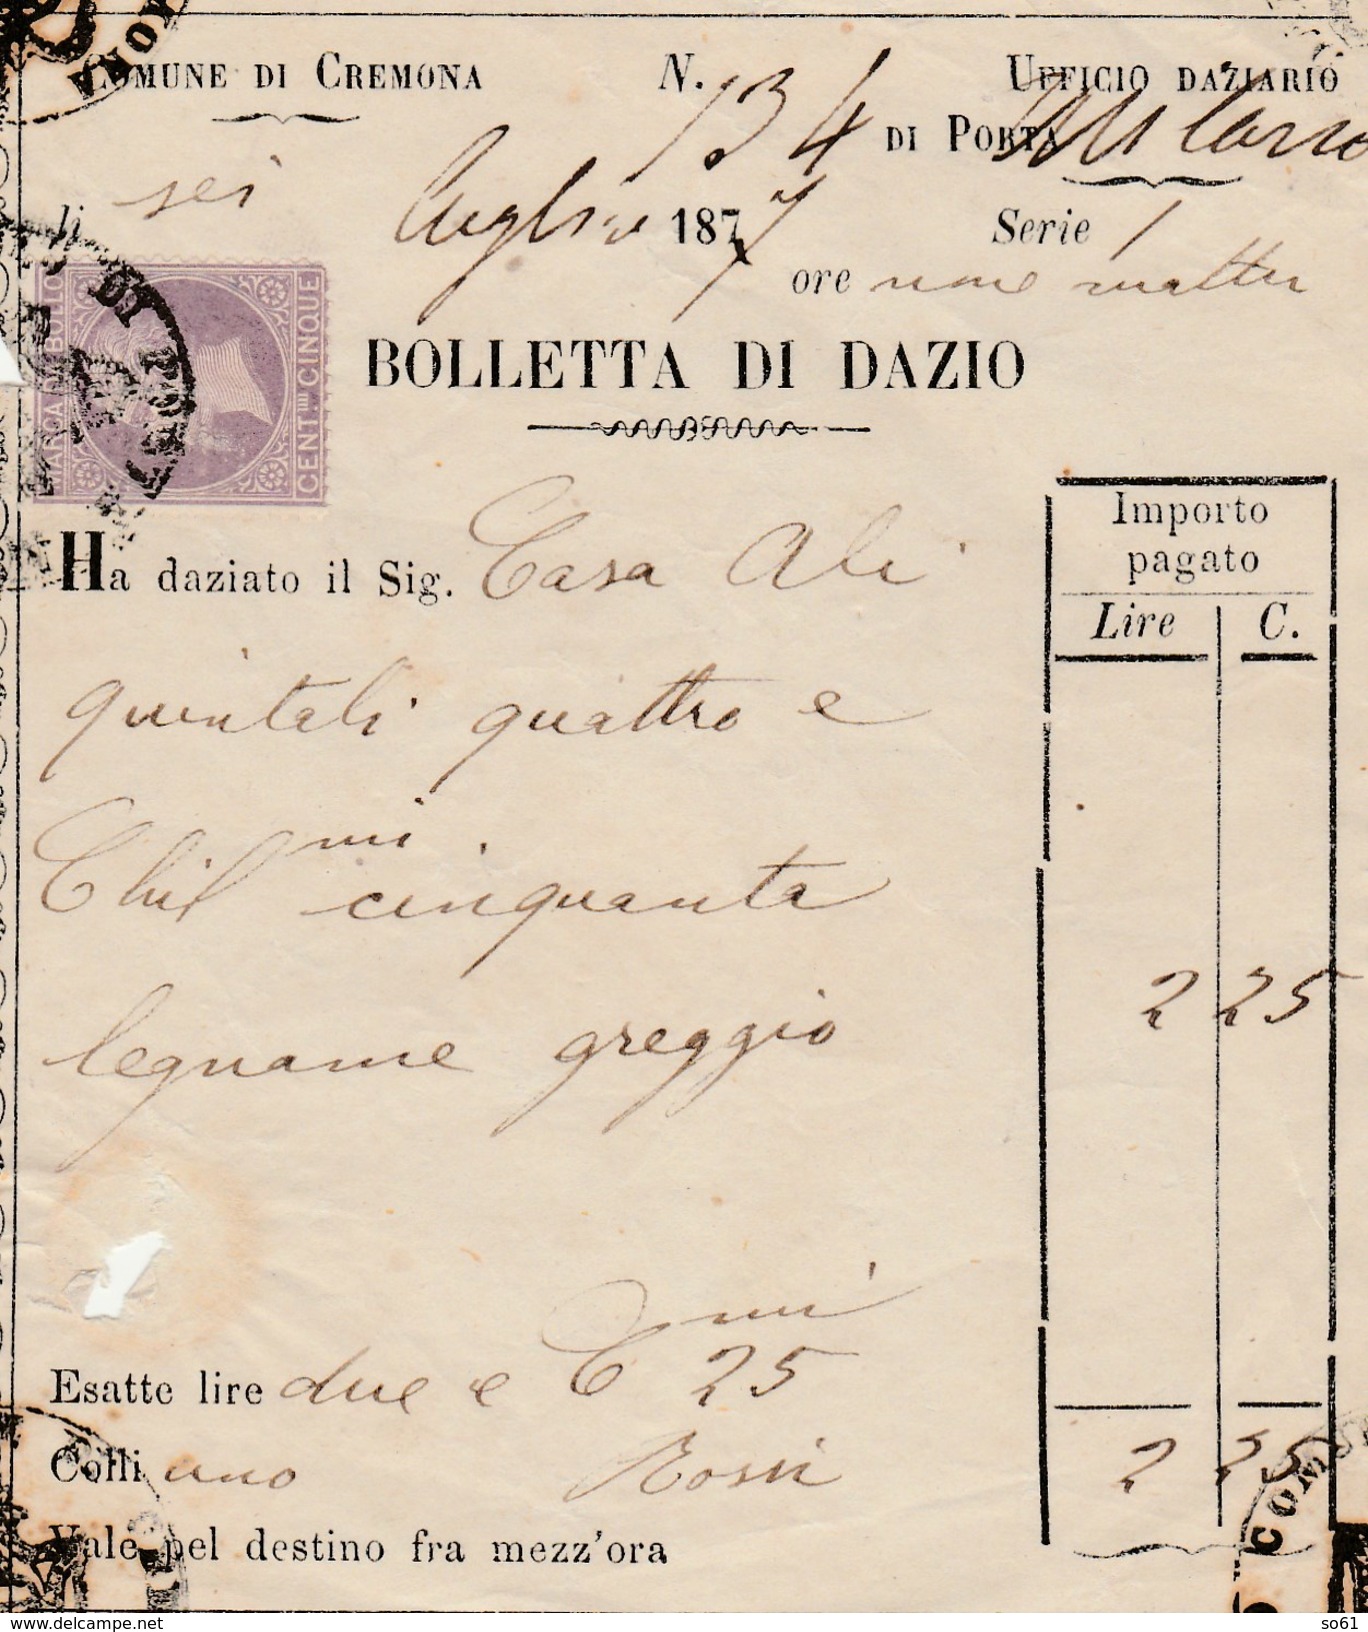 COMUNE DI CREMONA N. 134 UFFICIO DAZIARIO
DI PORTA Milano
li sei Luglio 1877 Serie 1
ore una matta
BOLLETTA DI DAZIO
MARCA DA BOLLO
CENT.MI CINQUE
Importo
pagato
Ha daziato il Sig. Casa Ali
Lire C.
quintali quattro e
Chil mi cinquanta
legname greggio 2 25
Esatte lire due e C mi 25
Colli uno Rossi 2 25
Vale pel destino fra mezz'ora
delcampe.net so61